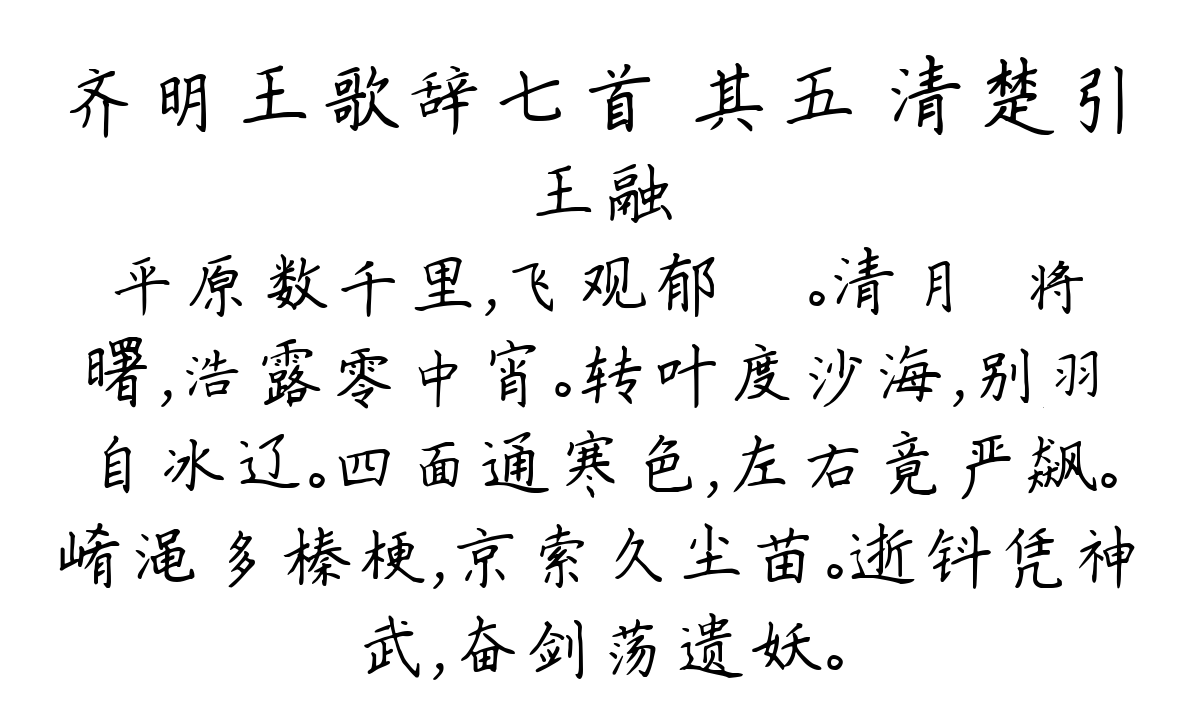 齐明王歌辞七首 其五 清楚引
王融
平原数千里,飞观郁 。清月 将
曙,浩露零中宵。转叶度沙海,别羽
自冰辽。四面通寒色,左右竟严飙。
崤渑多榛梗,京索久尘苗。逝钭凭神
武,奋剑荡遗妖。